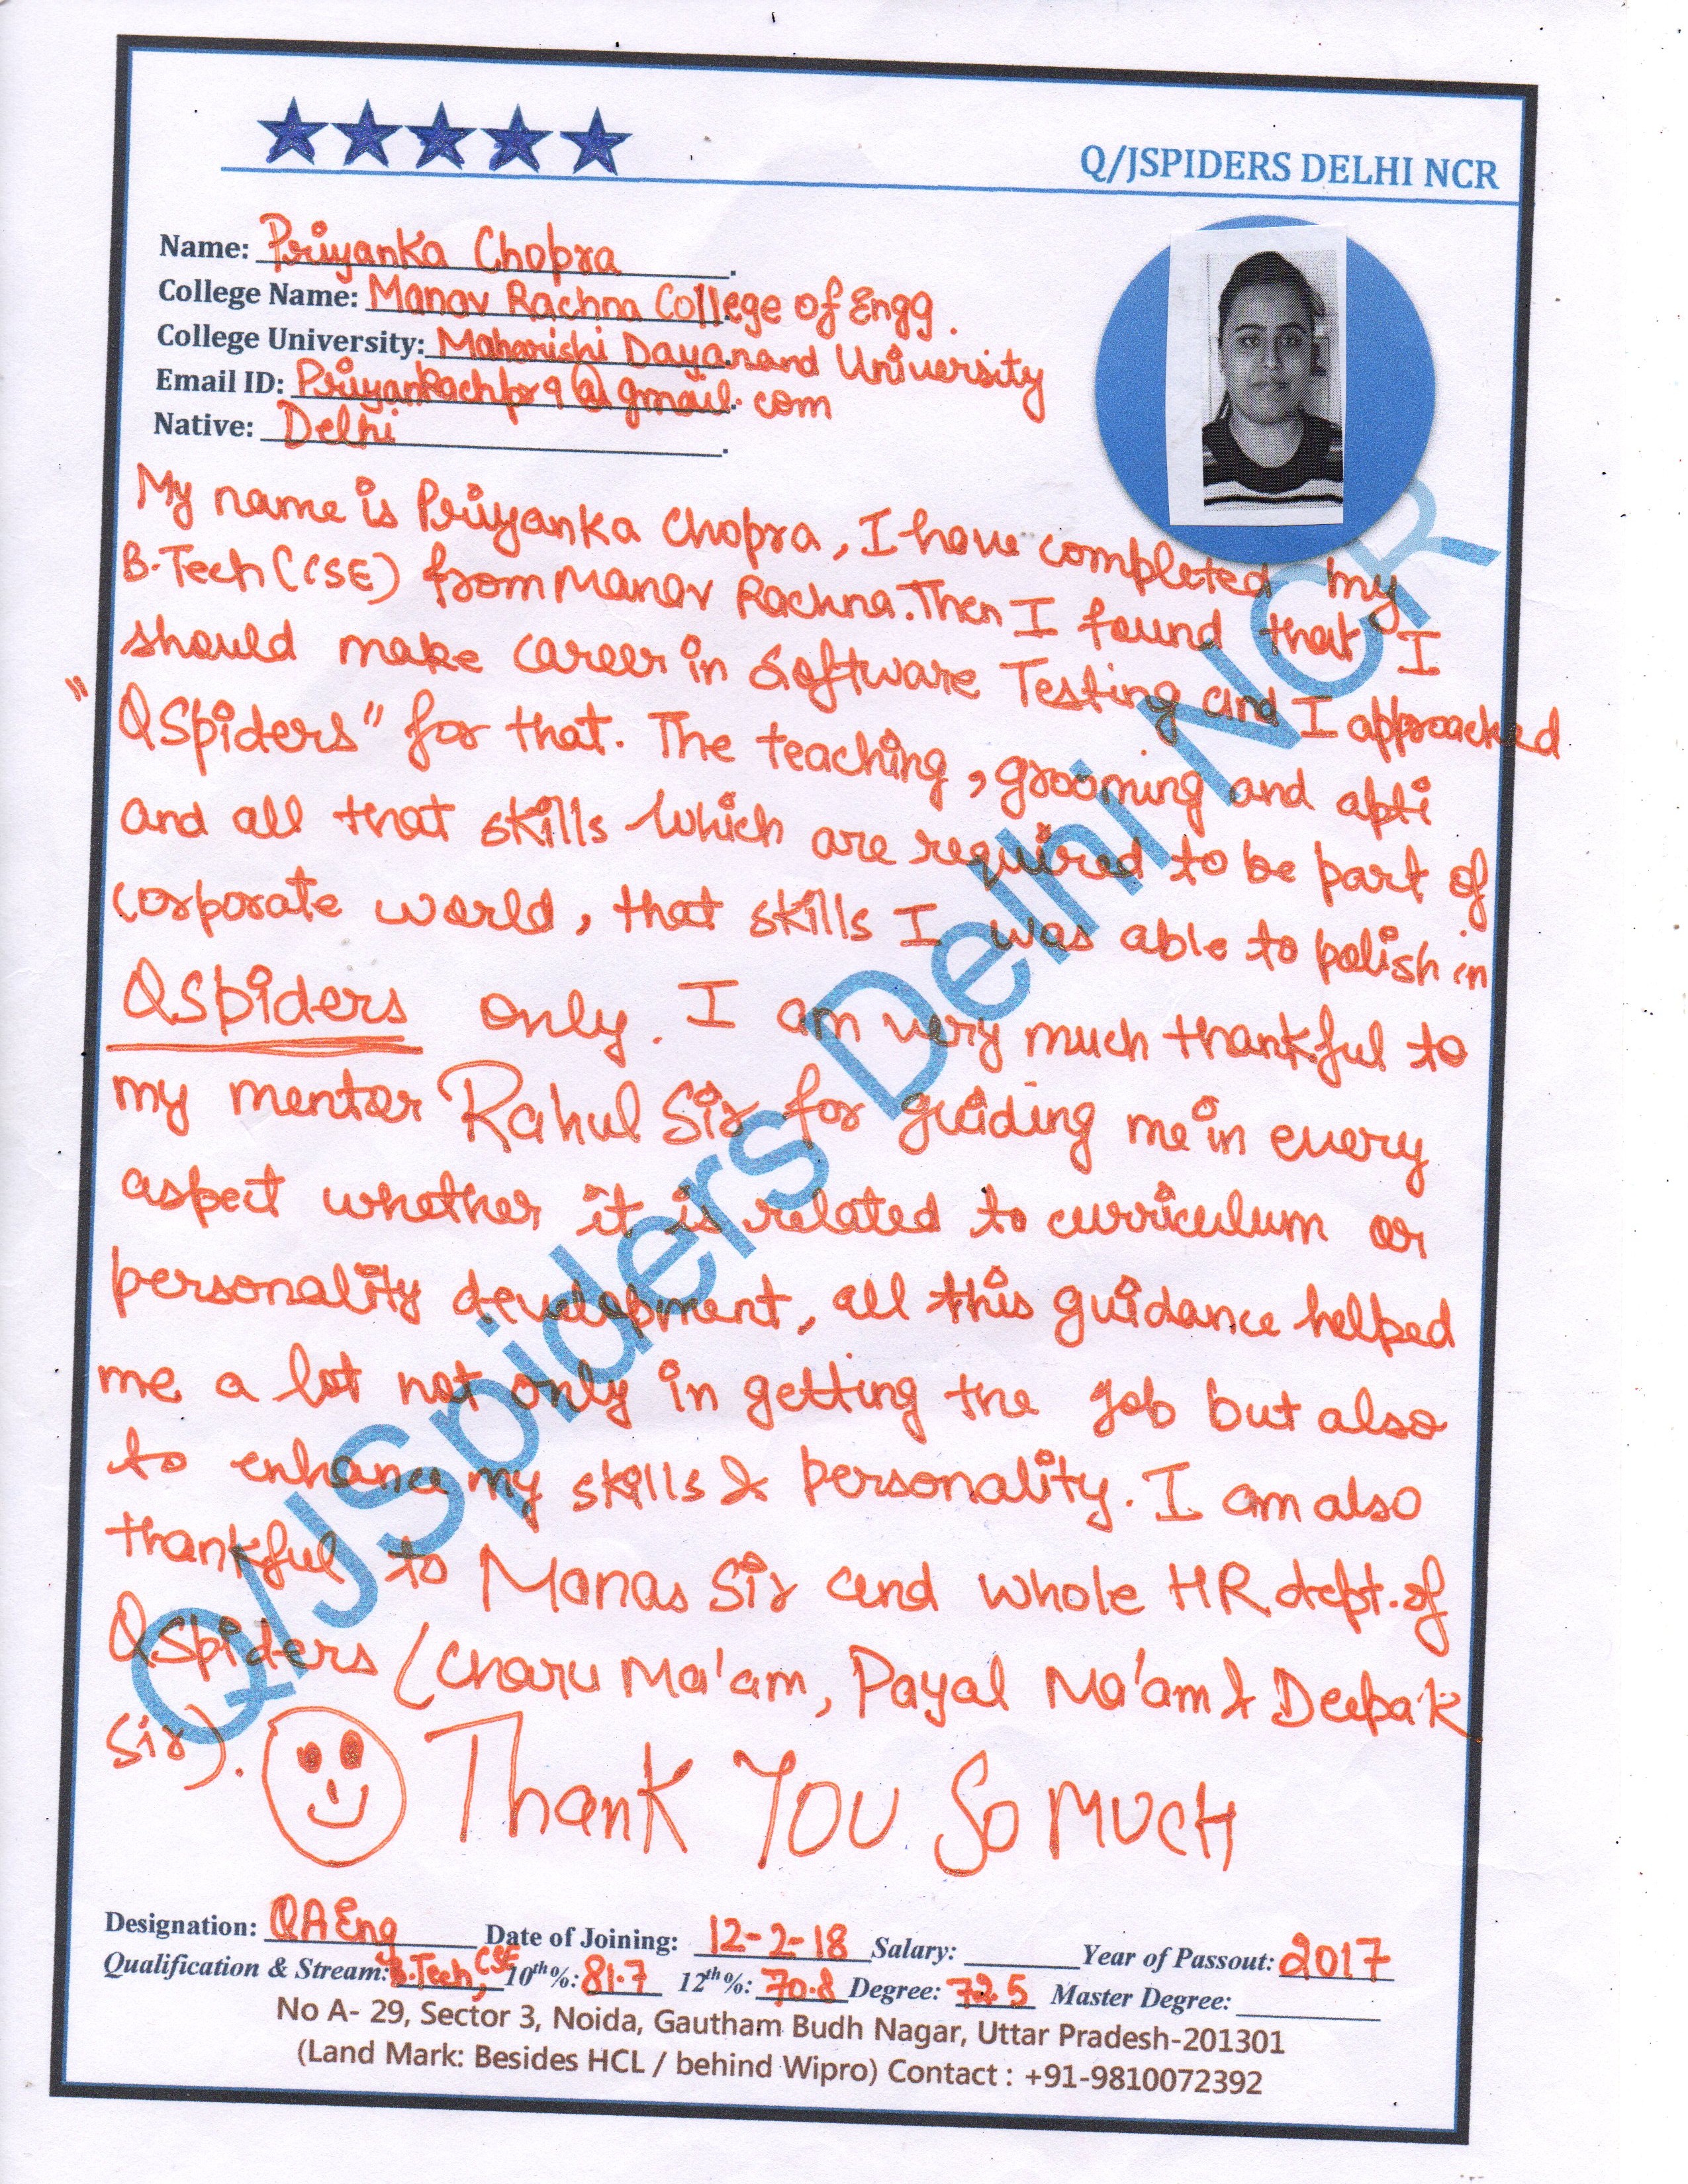 Q/JSPIDERS DELHI NCR
Name: Priyanka Chopra
College Name: Manav Rachna College of Engg.
College University: Maharishi Dayanand University
Email ID: Priyankachpr9@gmail.com
Native: Delhi
My name is Priyanka Chopra, I have completed my
B.Tech (CSE) from Manav Rachna. Then I found that I
should make career in Software Testing and I approached
"QSpiders" for that. The teaching, grooming and apti
and all that skills which are required to be part of
corporate world, that skills I was able to polish in
QSpiders only. I am very much thankful to
my mentor Rahul Sir for guiding me in every
aspect whether it is related to curriculum or
personality development, all this guidance helped
me a lot not only in getting the job but also
to enhance my skills & personality. I am also
thankful to Manas Sir and whole HR dept. of
QSpiders (Charu Ma'am, Payal Ma'am & Deepak
Sir). Thank You So Much
Designation: QA Eng Date of Joining: 12-2-18 Salary: Year of Passout: 2017
Qualification & Stream: B.Tech, CSE 10th%: 81.7 12th%: 70.8 Degree: 72.5 Master Degree:
No A- 29, Sector 3, Noida, Gautham Budh Nagar, Uttar Pradesh-201301
(Land Mark: Besides HCL / behind Wipro) Contact : +91-9810072392
Q/JSpiders Delhi NCR